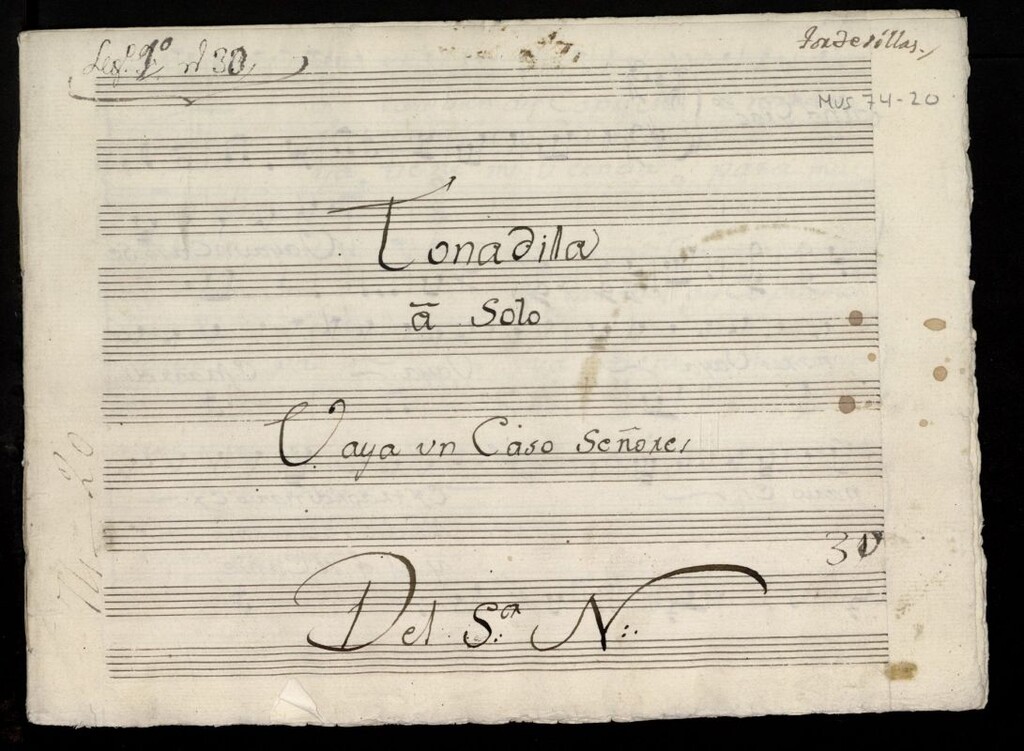 Leg.º 1º nº 30,
Tordesillas.
MUS 74-20
Tonadilla
ā Solo
Vaya vn Caso Señores
30
Del S.or N:.
74-20